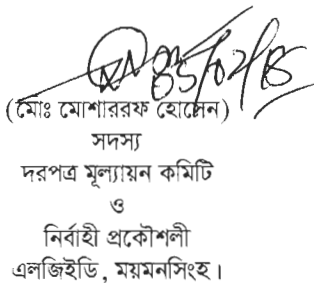 (মোঃ মোশাররফ হোসেন)
সদস্য
দরপত্র মূল্যায়ন কমিটি
ও
নির্বাহী প্রকৌশলী
এলজিইডি, ময়মনসিংহ।